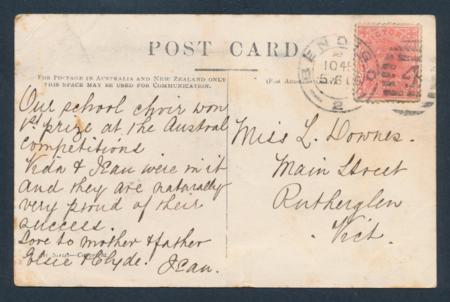 POST CARD
FOR POSTAGE IN AUSTRALIA AND NEW ZEALAND ONLY
THIS SPACE MAY BE USED FOR COMMUNICATION.
Our school choir won
1st prize at the Austral
competitions.
Vida & Jean were in it
and they are naturally
very proud of their
success.
Love to mother & father
Elsie & Clyde. Jean.
BENDIGO
10 45
2
Miss L. Downes.
Main Street
Rutherglen
Vict.